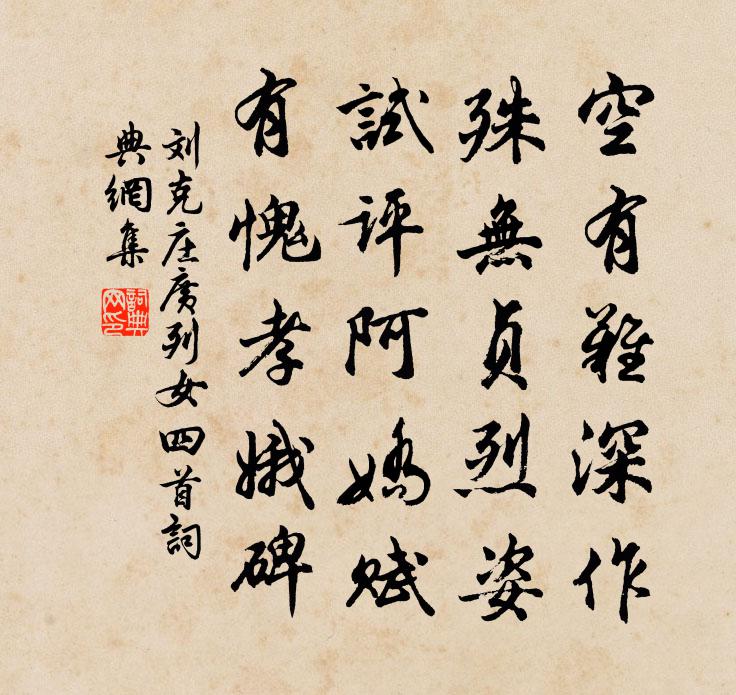 空有難深作
殊無貞烈姿
試評阿嬌賦
有愧孝娥碑
刘克庄廣列女四首詞
典網集
詞典
网印